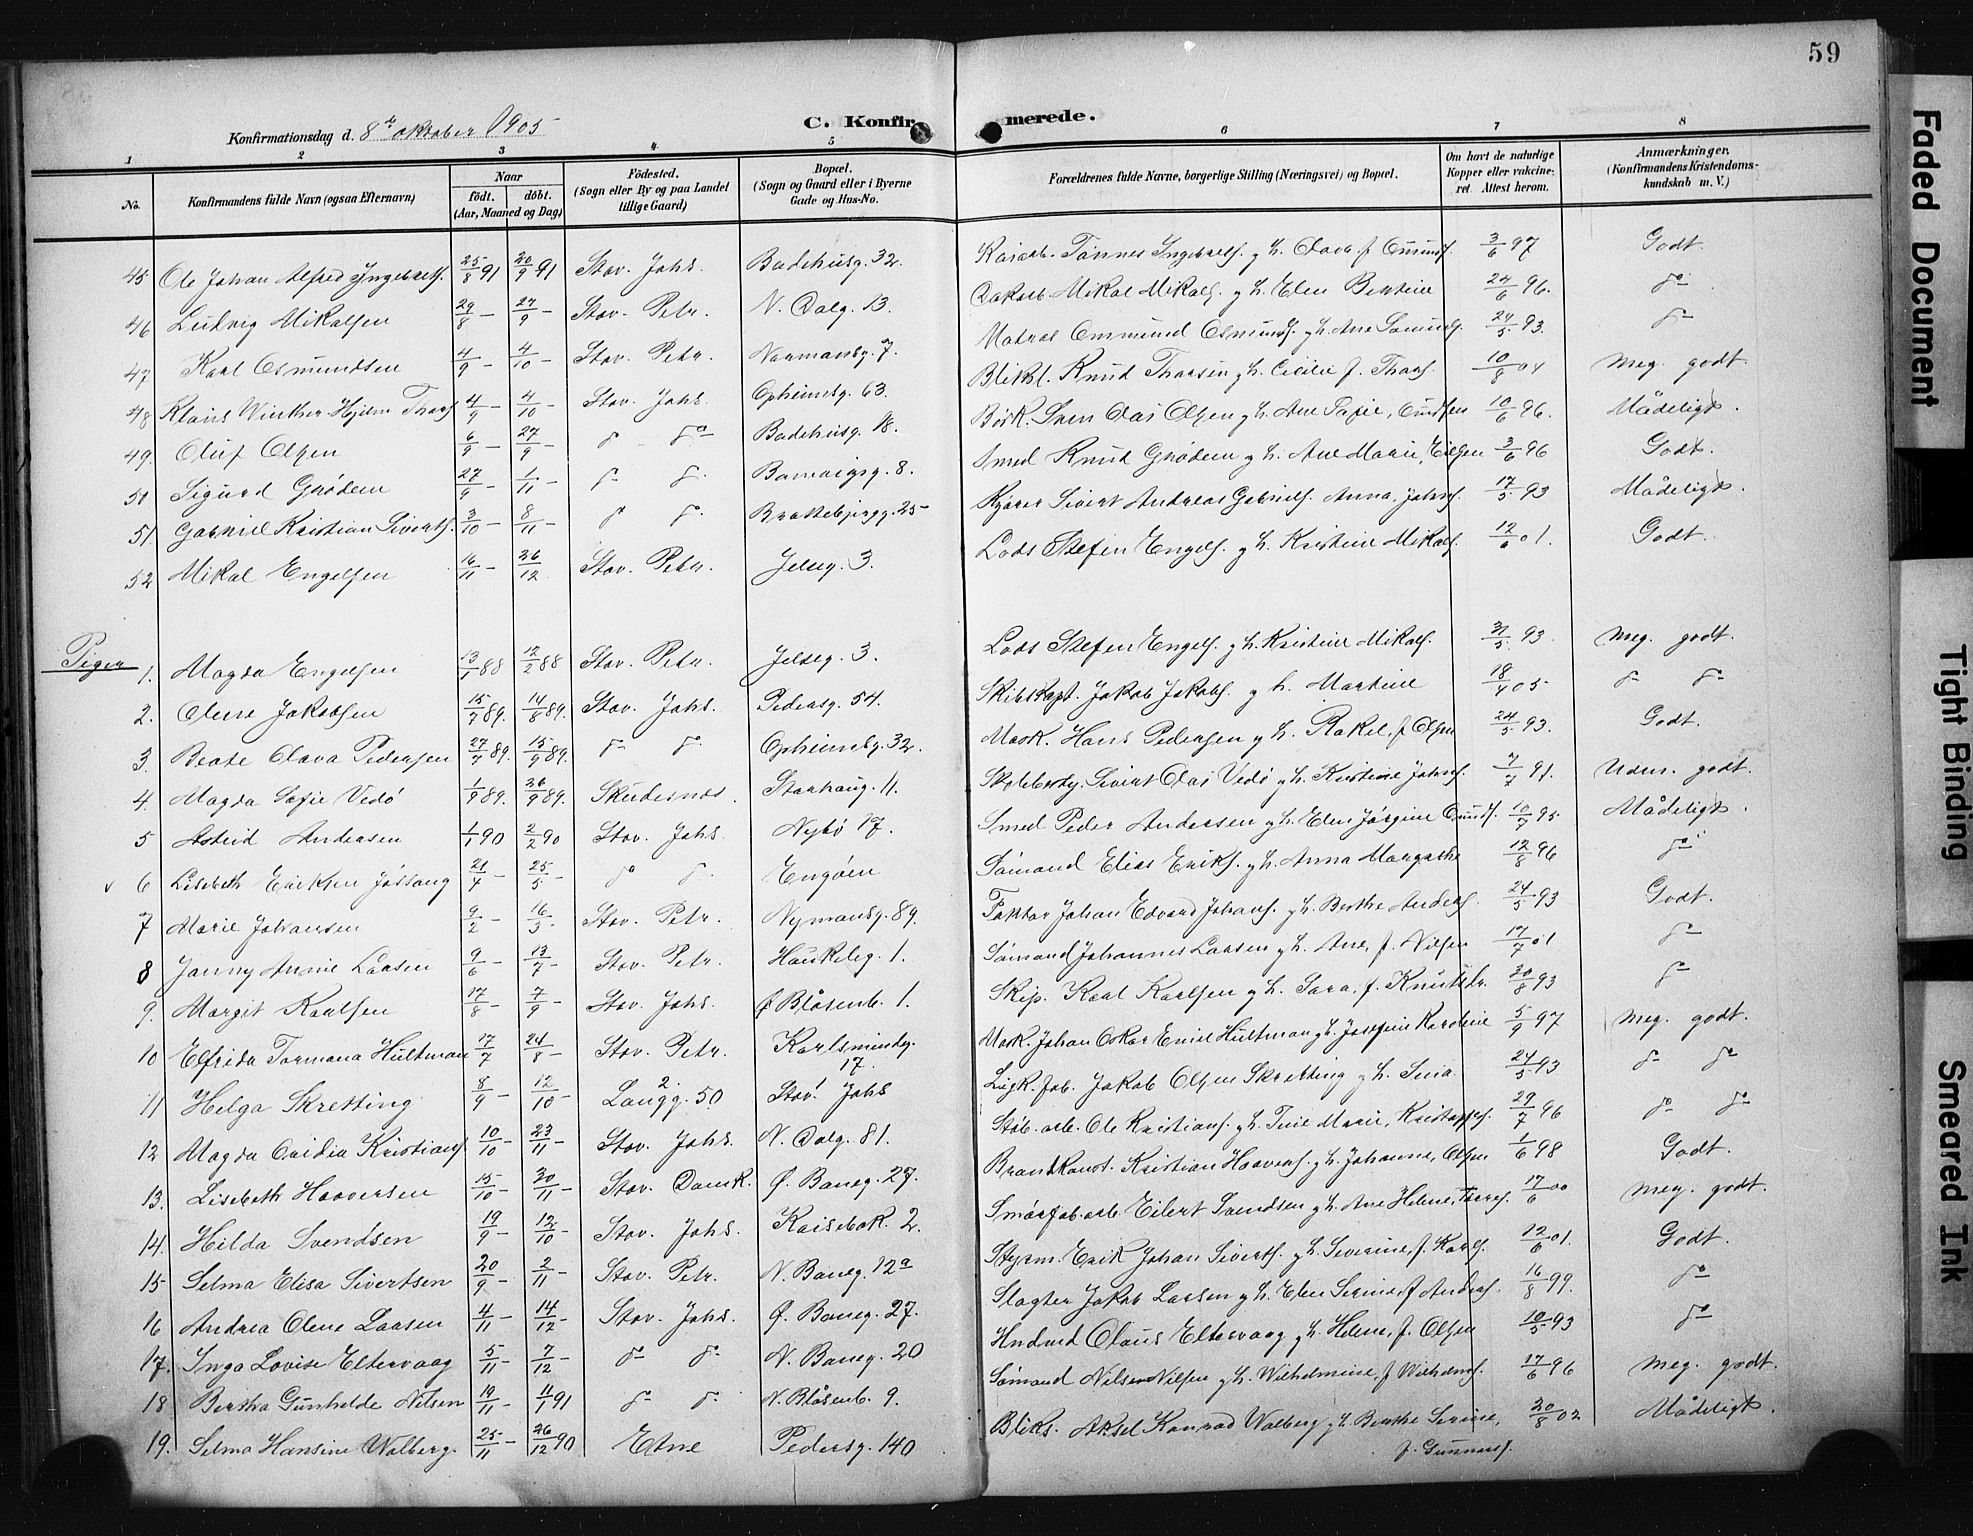 59
Konfirmationsdag d. 8de oktober 1905
C. Konfirmerede.
1 2 3 4 5 6 7 8
No. Konfirmandens fulde Navn (ogsaa Efternavn) Naar født. døbt. (Aar, Maaned og Dag) Fødested. (Sogn eller By og paa Landet tillige Gaard) Bopæl. (Sogn og Gaard eller i Byerne Gade og Hus-No. Forældrenes fulde Navne, borgerlige Stilling (Næringsvei) og Bopæl. Om havt de naturlige Kopper eller vakcineret. Attest herom. Anmærkninger. (Konfirmandens Kristendomskundskab m. V.)
45 Ole Johan Alfred Ingebrets. 25/8 91 20/9 91 Stav. Johs. Badehusg. 32. Tønnes Ingebrets. g h. Olava f. 3/6 97 Godt.
46 Ludvig Mikalsen 29/8 - 27/9 - Stav. Petr. N. Dalg. 13. Mikal Mikals. g h. Elen Bertine 24/6 96. do
47 Karl Osmundsen 4/9 - 4/10 - Stav. Petr. Normansg. 7. Matros Ommund Osmunds. g h. Ane Samuels. 24/5 93. do
48 Klaus Winther Hjelm Thars 4/9 - 4/10 - Stav. Johs. Opheimsg. 63. Bliksl. Knud Tharsen g h. Cicilie f. Thars. 10/8 04 Meg. godt.
49. Oluf Olsen 6/9 - 27/9 - do do Badehusg. 18. Bøsk. Sven Olai Olsen g h. Ane Sofie, 10/6 96. Mådeligt.
50 Sigurd Grødem 27/9 - 1/11 - do do 8. Smed Knud Grødem g h. Ane Marie, Eilsen 3/6 96 Godt.
51. Gabriel Kristian Siverts. 3/10 - 8/11 - do do 25 Kjører Sivert Andreas Gabriels. Anna, Johns. 17/5 93 Mådeligt.
52 Mikal Engelsen 16/11 - 26/12 Stav. Petr. Jelseg. 3. Lods Stefen Engels. g h. Kristine Mikals. 12/6 01. Godt.
Piger
1. Magda Engelsen 13/1 88 12/2 88 Stav. Petr. Jelseg. 3. Lods Stefen Engels. g h. Kristine Mikals. 31/5 93. Meg. godt.
2. Olene Jakobsen 15/7 89. 14/8 89. Stav. Johs. Pedersg. 54. Skibskapt. Jakob Jakobs. g h. Martine 18/4 05 do do
3. Beate Olava Pedersen 27/7 89. 15/9 89. do do Opheimsg. 32. Mask. Hans Pedersen g h. Rakel, f Olsen 24/5 93. Godt.
4. Magda Sofie Vedø 1/9 89. 26/9 89. Skudesnes. Storhaug. 11. Skolebesty. Sivert Olai Vedø g h. Kristine Johns. 7/7 91. Udm. godt.
5 Astrid Andersen 1/1 90 2/2 90 Stav. Johs Nybø 17. Smed Peder Andersen g h. Elen Jørgine 10/7 95 Mådeligt.
v 6 Lisebeth Eriksen Jøssang 21/4 - 25/5 - do do Engøen Sømand Elias Eriks. g h. Anna Margrethe 12/8 96 do
7 Marie Johansen 9/2 - 16/3 - Stav. Petr. Nymansg. 89. Faktor Johan Edvard Johans. g h. Berthe Anders. 24/5 93 Godt.
8 Janny Annie Laasen 9/6 - 13/7 - Stav. Petr. Haukelig. 1. Sømand Johannes Laasen g h. Ane, f. Nilsen 17/7 01 do
9. Margit Kaalsen 17/8 - 7/9 - Stav. Johs. Ø Blåsenb. 1. Skip. Karl Karlsen g h. Sara, f. Knutsdtr. 20/8 93 do
10 Elfrida Tormana Hultman 17/7 24/8 - Stav. Petr. Karlsmindeg. 17. Mask. Johan Oskar Emil Hultman g h. Josefine Karoline 5/9 97 Meg. godt.
11 Helga Skretting 8/9 - 12/10 - Langg. 50 2. Stav. Johs Jakob Olsen Skretting g h. Sina 24/5 93 do do
12 Magda Ovidia Kristians. 10/10 - 23/11 - Stav. Johs. N. Dalg. 81. Støb. arb. Ole Kristians. g h. Tine Marie, Kristoffers. 29/7 96 do do
13. Lisebeth Haaversen 15/10 - 30/11 - Stav. Domk. Ø. Baneg. 27. Brandkonst. Kristian Haavers. g h. Johanne, Olsen 1/6 98 Godt.
14. Hilda Svendsen 19/9 - 12/10 - Stav. Johs. 2. Smørfab. arb. Eilert Svendsen g h. Ane Helene, 17/6 00 Meg. godt.
15 Selma Elisa Sivertsen 20/9 - 2/11 - Stav. Petr. N. Baneg. 12a Styrm. Erik Johan Siverts. g h. Severine, f. Karls. 12/6 01. Godt.
16 Andrea Olene Laasen 4/11 - 14/12 - Stav. Johs. Ø. Baneg. 27. Slagter Jakob Larsen g h. Elen Serine, f Andreas. 16/8 99. do
17. Inga Lovise Eltervaag 5/11 - 7/12 - do do N. Baneg. 20 Claus Eltervaag g h. Helene, f. Olsen 10/5 93 do
18 Bertha Gunhelde Nilsen 19/11 - 11/1 91 do do N. Blåsenb. 9. Sømand Nils Nilsen g h. Wilhelmine, f Wilhelms. 17/6 96 Meg. godt.
19. Selma Hansine Walberg. 25/11 - 26/12 90 Etne Pedersg. 140 Bliks. Aksel Konrad Walberg g h. Berthe Serine, f. Gunnars. 20/8 02 Mådeligt.
Faded Document
Tight Binding
Smeared Ink